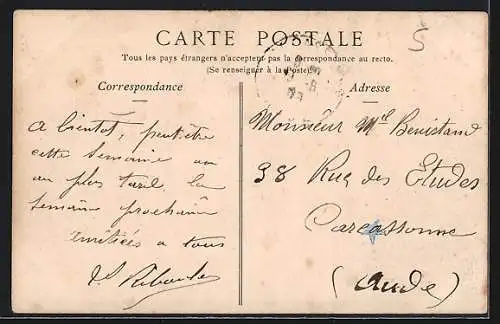 CARTE POSTALE
Tous les pays étrangers n'acceptent pas la correspondance au recto.
(Se renseigner à la Poste)
Correspondance
A bientôt, peut-être
cette semaine ou
au plus tard, la
semaine prochaine
Amitiés a tous
Adresse
5
Monsieur Mel
38 Rue des Etudes
Carcassonne
(Aude)